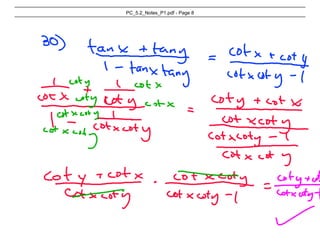 PC_5.2_Notes_P1.pdf - Page 8
30) (tan x + tan y)/(1 - tan x tan y) = (cot x + cot y)/(cot x cot y - 1)
(1/cot x · cot y/cot y + 1/cot y · cot x/cot x)/(1 · cot x cot y/cot x cot y - 1/cot x cot y) = ((cot y + cot x)/(cot x cot y))/((cot x cot y - 1)/(cot x cot y))
(cot y + cot x)/(cot x cot y) · (cot x cot y)/(cot x cot y - 1) = (cot y + cot)/(cot x cot y -